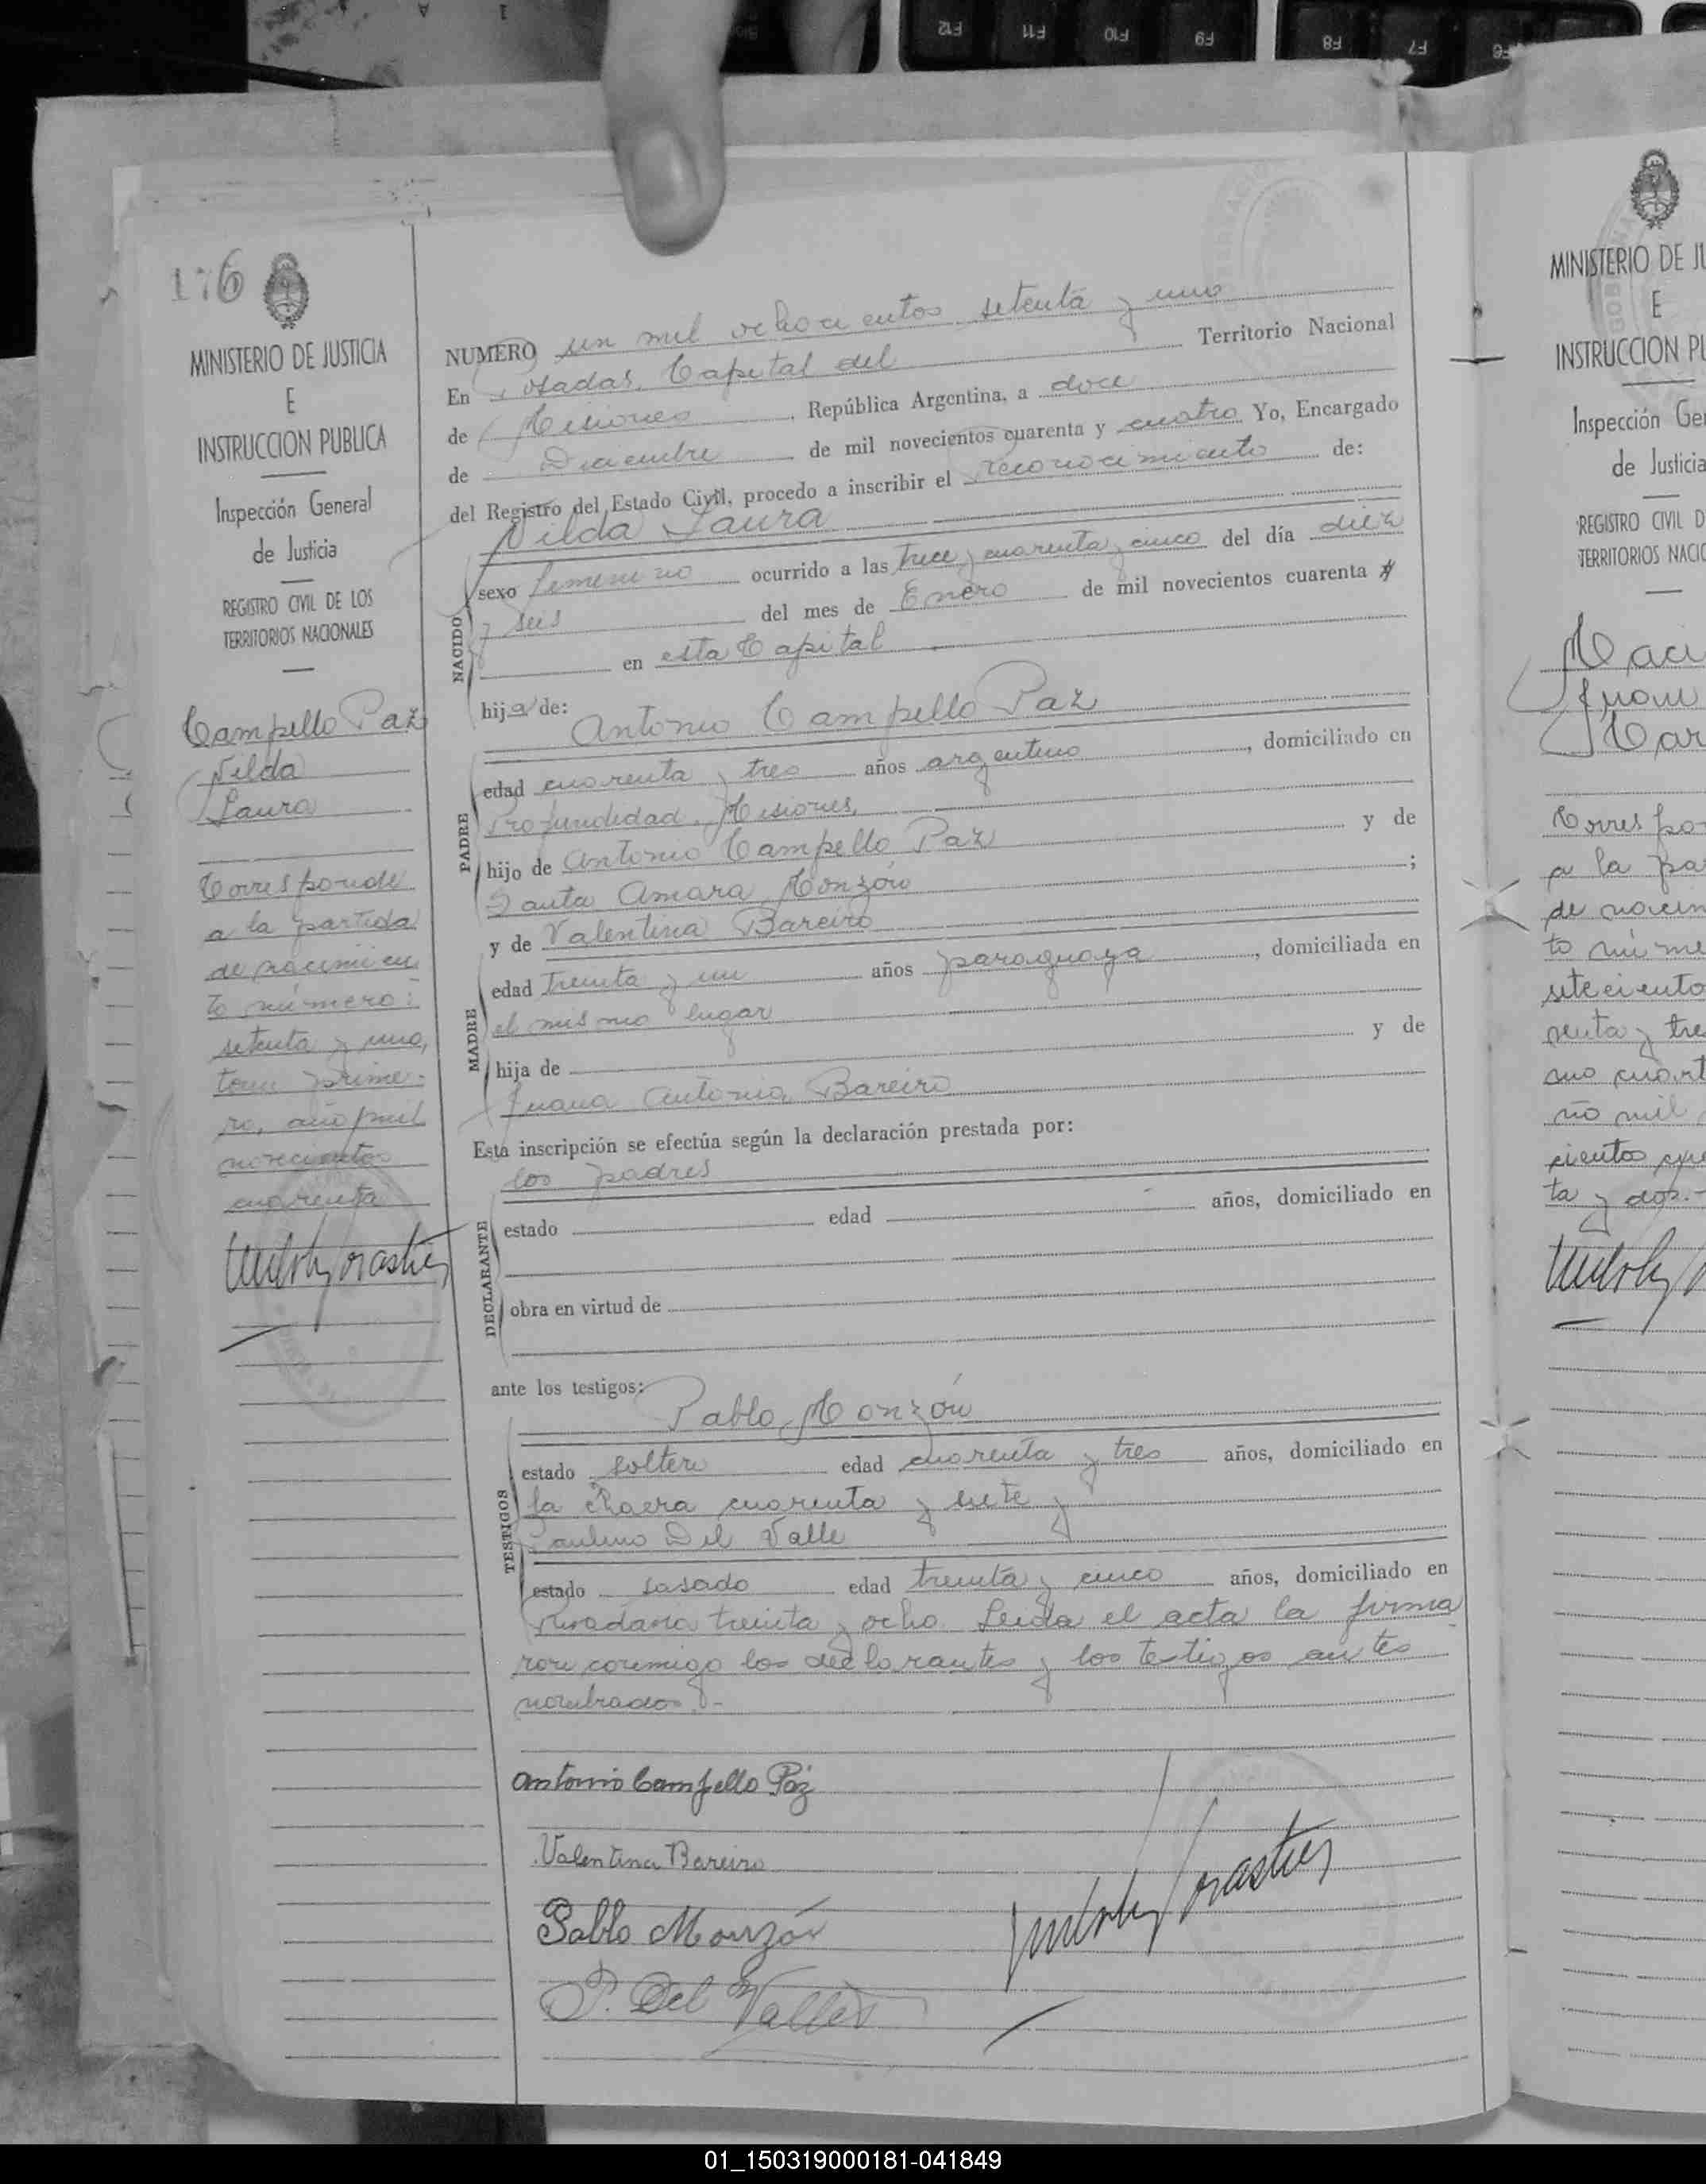 F12 F11 F10 F9 F8 F7 F6
176
MINISTERIO DE JUSTICIA
E
INSTRUCCION PUBLICA
Inspección General
de Justicia
REGISTRO CIVIL DE LOS
TERRITORIOS NACIONALES
Campello Paz
Nilda
Laura
Corresponde
a la partida
de nacimien
to número:
setenta y uno,
tomo prime-
ro, año mil
novecientos
cuarenta
NUMERO un mil ochocientos setenta y uno
En Posadas, Capital del Territorio Nacional
de Misiones, República Argentina, a doce
de Diciembre de mil novecientos cuarenta y cuatro Yo, Encargado
del Registro del Estado Civil, procedo a inscribir el reconocimiento de:
Nilda Laura
NACIDO
sexo femenino ocurrido a las trece y cuarenta y cinco del día diez
y seis del mes de Enero de mil novecientos cuarenta
en esta Capital
hija de:
Antonio Campello Paz
PADRE
edad cuarenta y tres años argentino, domiciliado en
Profundidad, Misiones,
hijo de Antonio Campello Paz y de
Santa Amara Monzón;
y de Valentina Bareiro
MADRE
edad treinta y un años paraguaya, domiciliada en
el mismo lugar
hija de y de
Juana Antonia Bareiro
Esta inscripción se efectúa según la declaración prestada por:
los padres
DECLARANTE
estado edad años, domiciliado en
obra en virtud de
ante los testigos:
Pablo Monzón
TESTIGOS
estado soltero edad cuarenta y tres años, domiciliado en
la chacra cuarenta y siete y
Paulino Del Valle
estado casado edad treinta y cinco años, domiciliado en
Rivadavia treinta y ocho. Leida el acta la firma
ron conmigo los declarantes y los testigos antes
nombrados.-
Antonio Campello Paz
Valentina Bareiro
Pablo Monzón
P. Del Valle
MINISTERIO DE JU
E
INSTRUCCION PU
Inspección Ge
de Justicia
REGISTRO CIVIL D
TERRITORIOS NACIO
Juan
Correspo
a la pa
de nacim
to núme
setecientos
renta y tre
mo cuart
ño mil
cientos cua
ta y dos.-
01_150319000181-041849